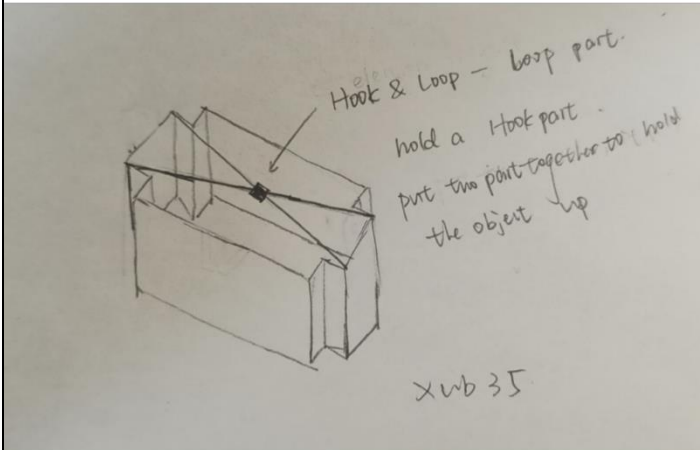 Hook & Loop - Loop part.
hold a Hook part.
put two part together to hold
the object up
xwb35